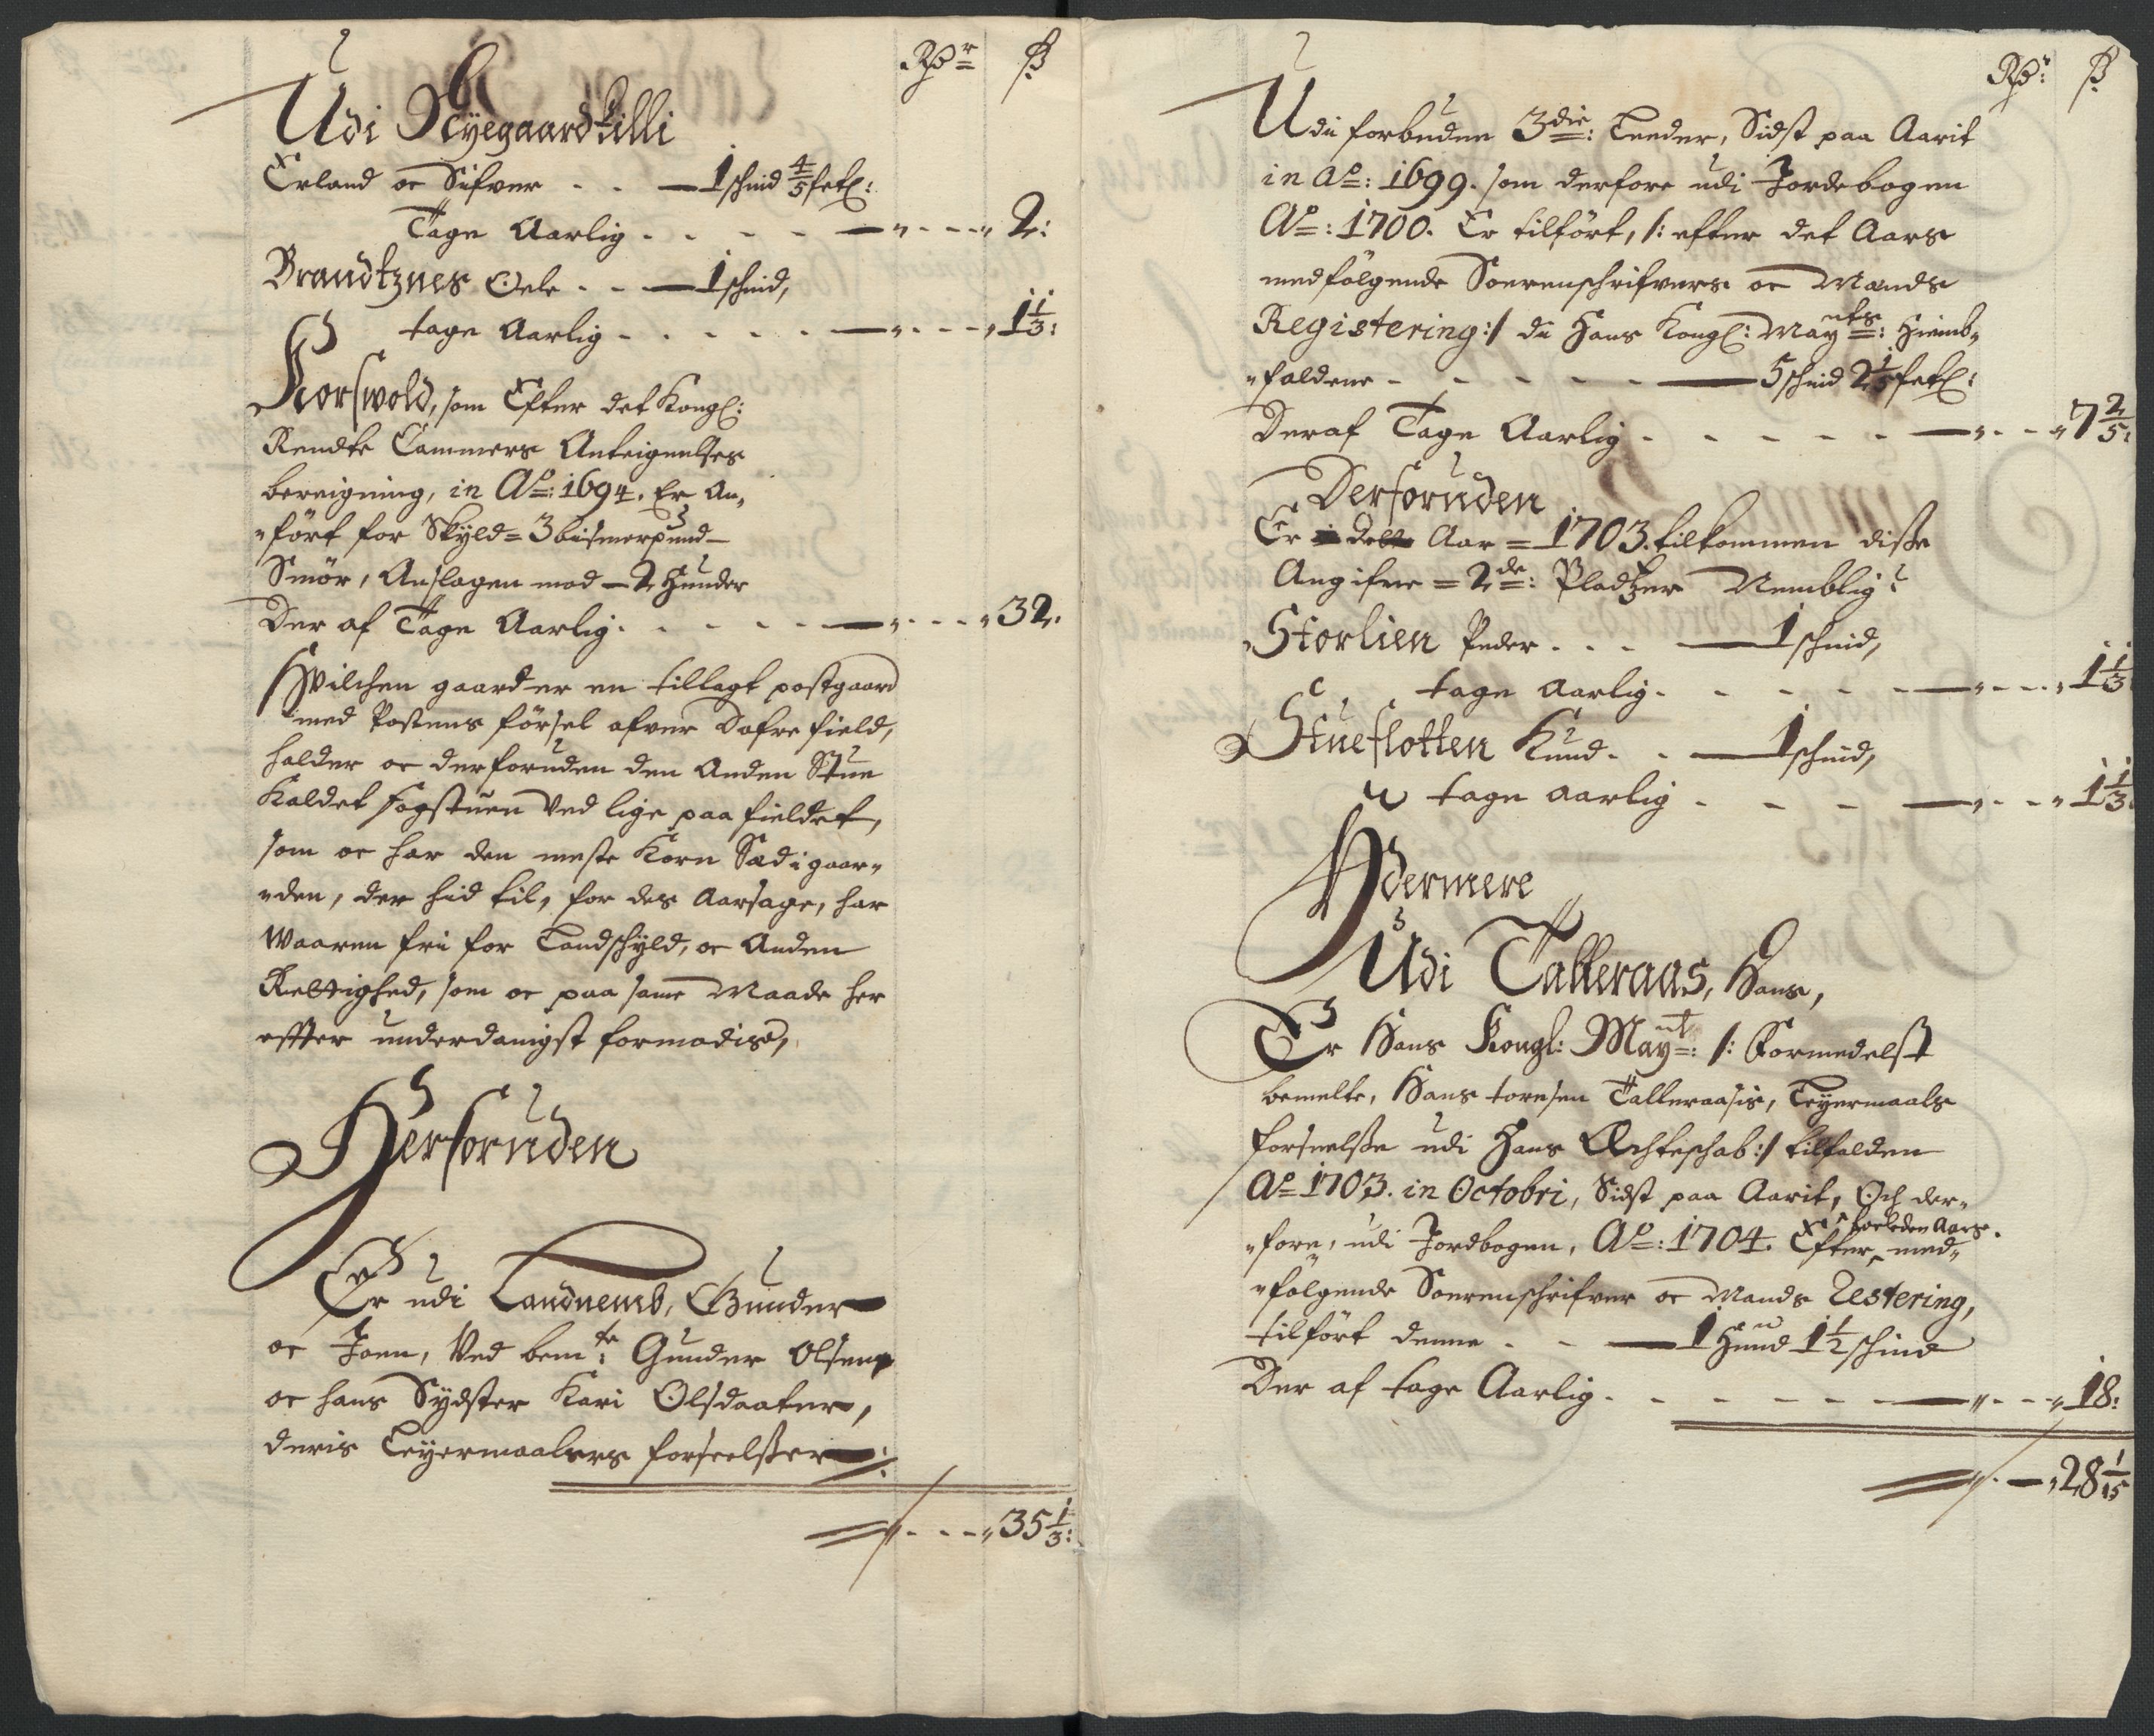 Rdr ß
Udi Nyegaard tilli
Erland oc Sifver . . — 1 schind 4/5 setl:
Tage Aarlig . . . . — „ . . . „ 2:
Brandtznes Oele . . — 1 schind,
tage Aarlig . . . . . — „ . . . „ 1 1/3:
Forswold, som Efter det Kongl:
Rendte Cammers Anteignelses
bereigning, in Ao: 1694. Er An„
„fört for Skyld = 3 bismerpund
Smör, Anslagen mod — 2 Hunder
Der af Tage Aarlig . . . . . — „ . . . „ 32.
Hvilchen gaard er en tillagt postgaard
med Postens förfsel ofver Dofrefield,
holder oc derforuden den Anden Stue
Kaldet fogstuen Ved lige paa fieldet,
som oc har den meste Korn Sæd i gaar„
„den, der hid til, for des Aarsage, har
Waaren fri for Landschyld, oc Anden
Rettighed, som oc paa same Maade her
effter underdanigst formodis,
Herforuden
Er udi Landnemb, Gunder
oc Joen, Ved bemte: Gunder Olsen
oc hans Sydster Kari Olsdaater,
deris Leyermaalers forseelsser :
„ . . . „ 35 1/3:
Rdr: ß
Udi forbuden 3die: Leeder, Sidst paa Aarit
in Ao: 1699. som derfore udi Jordebogen
Ao: 1700. Er tilfört, /: efter det Aars
medfölgende Sorenschrifvers oc Mænds
Registering :/ du Hans Kongl: Mayts: Hiemb„
„faldene . . . . . — 5 schind 2 1/5 setl:
Deraf Tage Aarlig . . . . . — „ . . „ 7 2/5:
Derforuden
Er Aar = 1703. tilkommen disse
Angifne = 2de: Pladtzer Nemblig
Storlien Peder . . . — 1 schind,
tage Aarlig . . . . . — „ . . . „ 1 1/3
Stueflotten Knud . . — 1 schind,
tage aarlig . . . — „ . . „ 1 1/3
Ydermere
Udi Talleraas, Hans,
Er Hans Kongl: Mayt: /: Formedelst
bemelte, Hans toresen Talleraasis, Leyermaals
forseelsse udi Hans Æchteschab :/ tilfalden
Ao 1703. in Octobri, Sidst paa Aarit, Och der„
„fore, udi Jordbogen, Ao: 1704. Efter forleden Aars med„
„fölgende Sorenschrifver oc Mands Restering,
tilfört denne . . — 1 Hund 1 1/2 schind
Der af tage Aarlig . . . . . . — „ . . „ 18:
„ . — „ 28 1/15